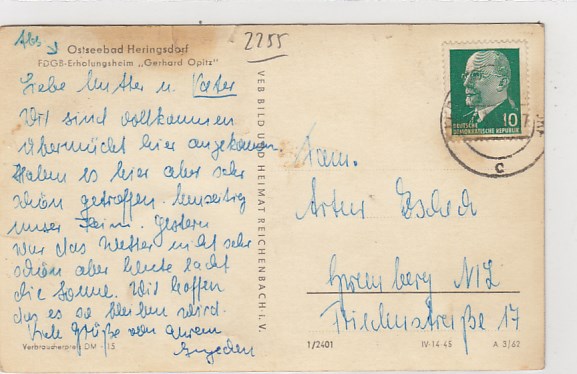 Abs
Ostseebad Heringsdorf
FDGB-Erholungsheim „Gerhard Opitz"
2255
Liebe Mutter u. Vater
Wir sind vollkommen
übermüdet hier angekommen.
Haben es hier aber sehr
schön getroffen.
unser Heim. Gestern
war das Wetter nicht sehr
schön aber heute lacht
die Sonne. Wir hoffen
das es so bleiben wird.
Viele Grüße von
VEB BILD UND HEIMAT REICHENBACH I. V.
10
DEUTSCHE
DEMOKRATISCHE REPUBLIK
C
Fam.
Artur
NL
Friedensstraße 17
Verbraucherpreis DM -,15
1/2401
IV-14-45
A 3/62